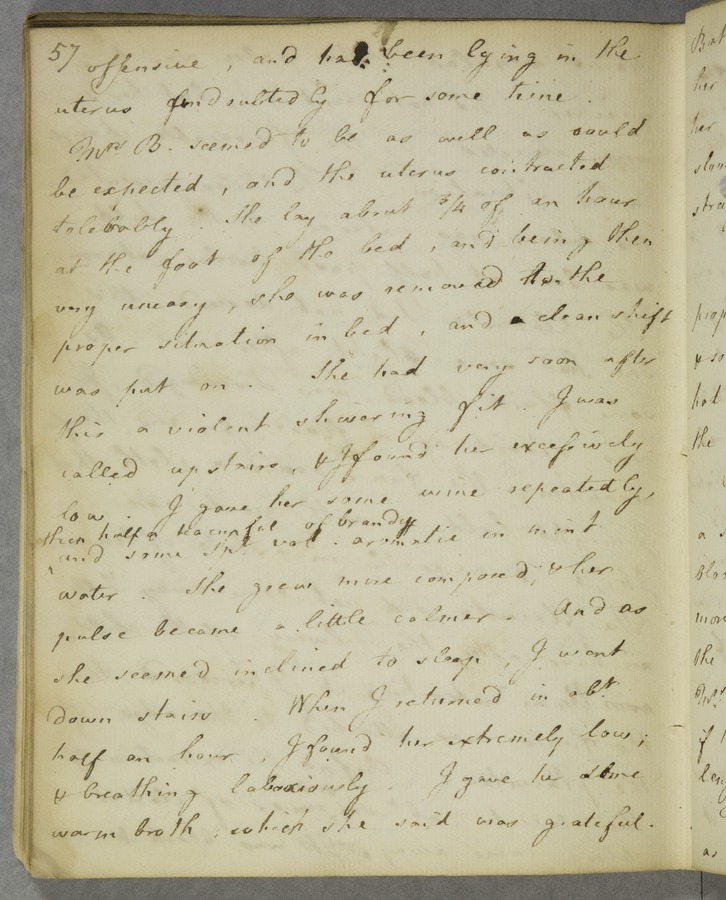 57
offensive, and had been lying in the
uterus undoubtedly for some time.
Mrs B. seemed to be as well as could
be expected, and the uterus contracted
tolerably. She lay about 3/4 of an hour
at the foot of the bed, and being then
very uneasy, she was removed to the
proper situation in bed, and a clean shift
was put on. She had very soon after
this a violent shivering fit. I was
called upstairs, & I found her excessively
low. I gave her some wine repeatedly,
then half a teacupful of brandy
and some Spt vol. aromatic in mint
water. She grew more composed, & her
pulse became a little calmer. And as
she seemed inclined to sleep, I went
down stairs. When I returned in abt
half an hour, I found her extremely low;
& breathing laboriously. I gave her some
warm broth, which she said was grateful.
But
her
her
slow
prop
& so
had
the
a s
more
the
Mrs
if
len
as